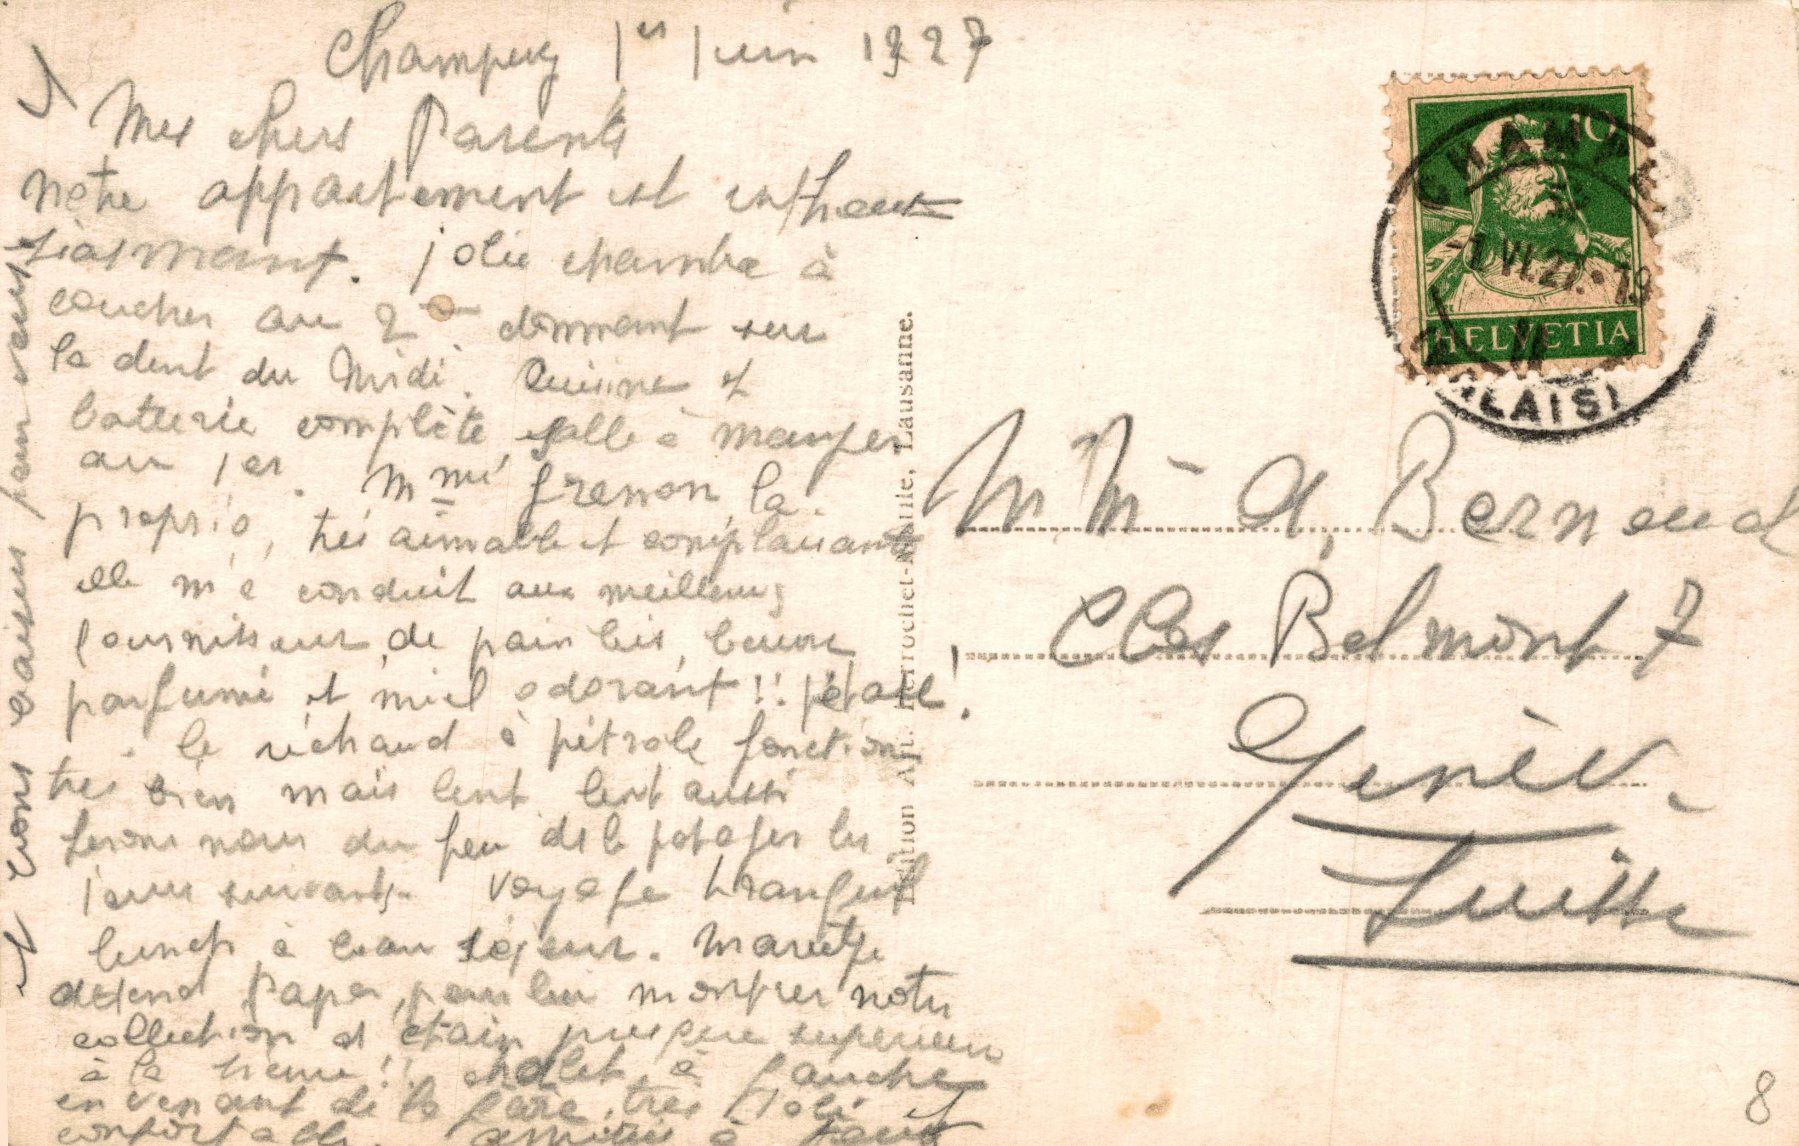 Champery 1er Juin 1927
Mes chers Parents
notre appartement est enthou
siasmant. jolie chambre à
coucher au 2e donnant sur
la dent du Midi. Cuisine et
batterie complète, salle à manger
au 1er. Mme Grenon, la
proprio, très aimable et complaisante
elle m'a conduit aux meilleurs
fournisseurs de pain bis, beurre
parfumé et miel odorant!!
le réchaud à pétrole fonction
très bien mais lent, lent aussi
ferons nous du feu ds le potager les
jours suivants. Voyage tranquil
lunch à beau séjour. Maritje
attend Papa, pour lui montrer notre
collection d étain presque supérieure
à la sienne!! chalet à gauche
en venant de la gare, très joli et
confortable. amitiés à tous
et bons baisers pour vous
M Me A. Bernoud
Clos Belmont 7
Genève
Suisse
Edition Art. Perrochet-Matile, Lausanne.
10
HELVETIA
CHAMPERY
-1.VI.27.-19
(VALAIS)
8